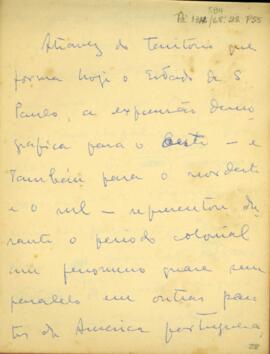 584
Pi 132/68:28 P55
Atravez do Territorio que
forma hoje o Estado de S
Paulo, a expansão demo
gráfica para o Oeste – e
Também para o nordeste
e o sul – representou du
rante o periodo colonial
um fenomeno quase sem
paralelo em outras par
tes da America portuguesa,